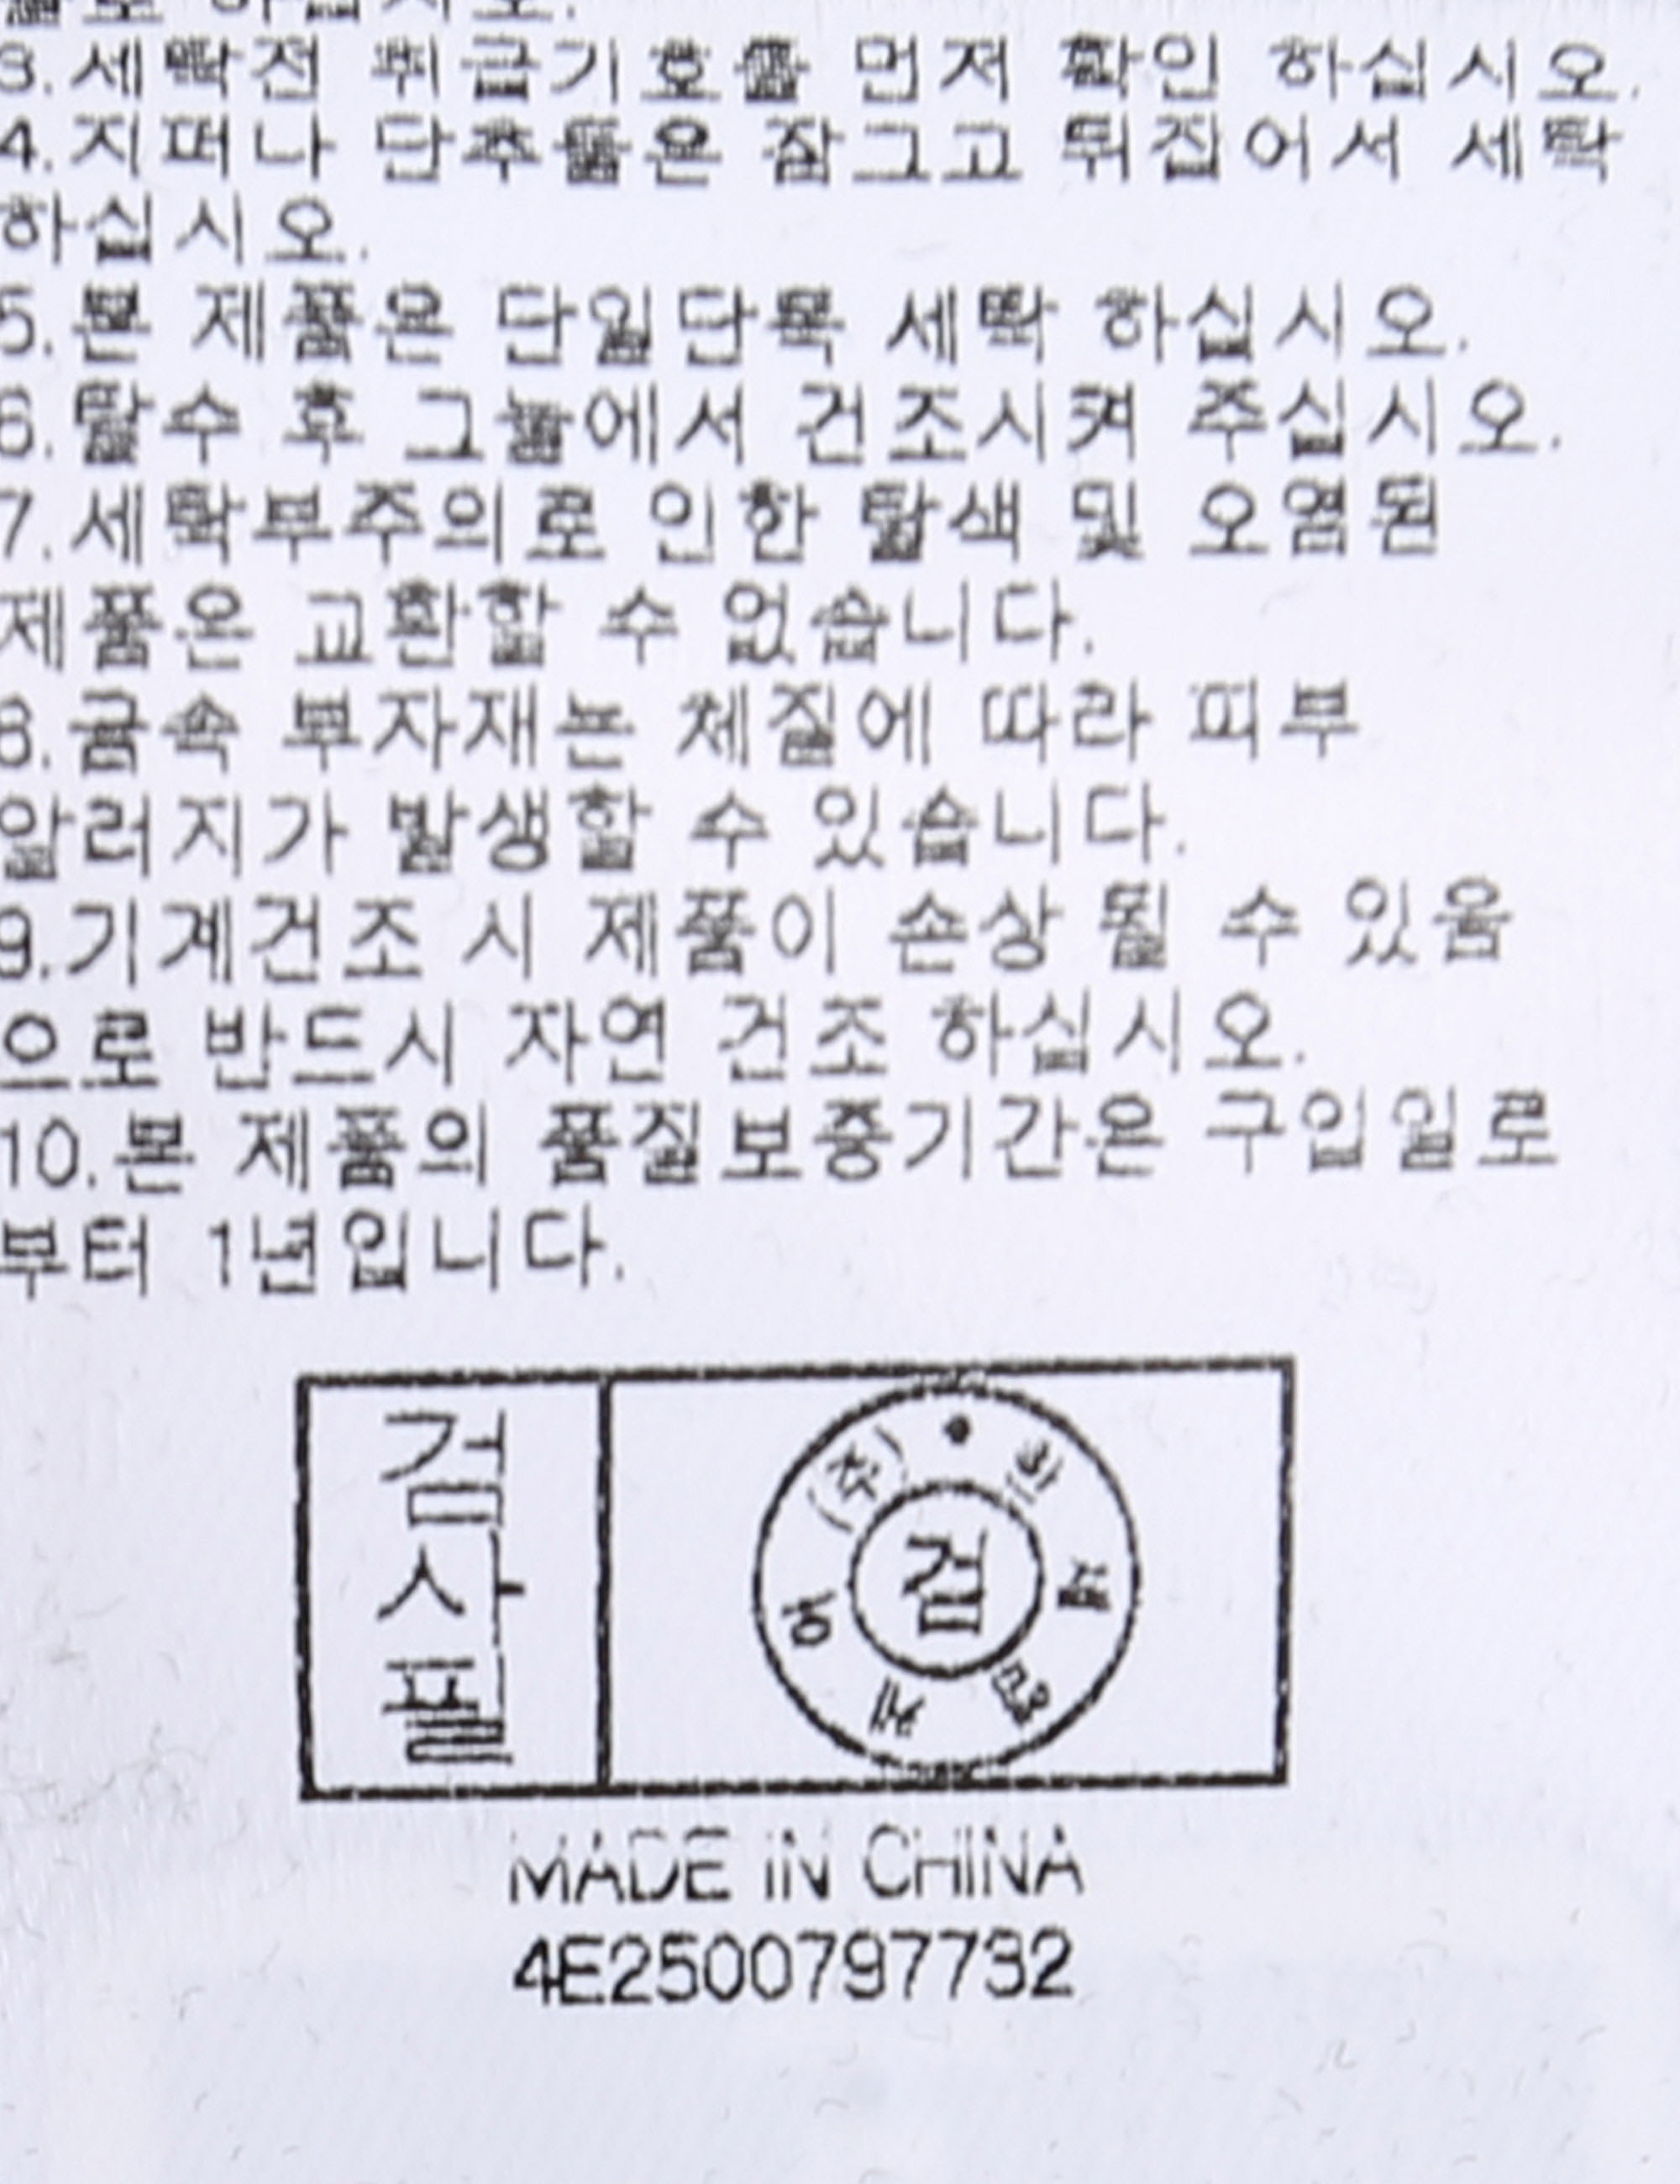 하십시오.
3.세탁전 취급기호를 먼저 확인 하십시오.
4.지퍼나 단추들은 잠그고 뒤집어서 세탁
하십시오.
5.본 제품은 단일단독 세탁 하십시오.
6.탈수 후 그늘에서 건조시켜 주십시오.
7.세탁부주의로 인한 탈색 및 오염된
제품은 교환할 수 없습니다.
8.금속 부자재는 체질에 따라 피부
알러지가 발생할 수 있습니다.
9.기계건조 시 제품이 손상 될 수 있음
으로 반드시 자연 건조 하십시오.
10.본 제품의 품질보증기간은 구입일로
부터 1년입니다.
검사필
(주)
검
MADE IN CHINA
4E2500797732